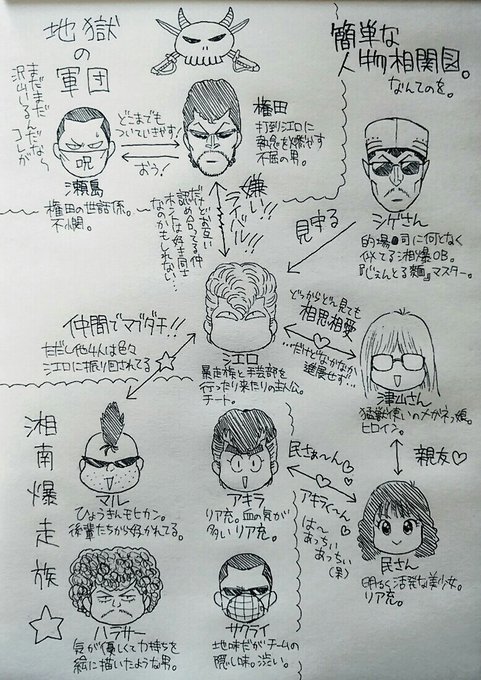 簡単な
人物相関図。
なんてのを。
地獄
の
軍団
まだまだ
沢山いるんだなら
コレが
呪
瀬島
権田の世話係。
不憫。
どこまでも
ついていきやす!
おう!
権田
打到江口に
執念を燃やす
不屈の男。
嫌い!!
ライバル!!
だけどお互い
認め合ってる仲
ホントは好き同士
なのかもしれない…
見守る
シゲさん
的場●司に何となく
似てる湘爆OB。
『じぇんとる麺』マスター。
仲間でマブダチ!!
ただし他4人は色々
江口に振り回されてる
江口
暴走族と手芸部を
行ったり来たりの主人公。
チート。
どっからどー見ても
相思相愛
…だけどなかなか
進展せず…
津山さん
猛獣使いのメガネっ娘。
ヒロイン。
親友♡
湘南爆走族
マル
ひょうきんモヒカン。
後輩たちから好かれてる。
アキラ
リア充。血の気が
多いリア充。
民さぁ~ん♡
アキラく~ん♡
は~
あっちい
あっちい
(笑)
民さん
明るく活発な美少女。
リア充。
ハラサー
気が優しくて力持ちを
絵に描いたような男。
サクライ
地味だがチームの
隠し味。渋い。